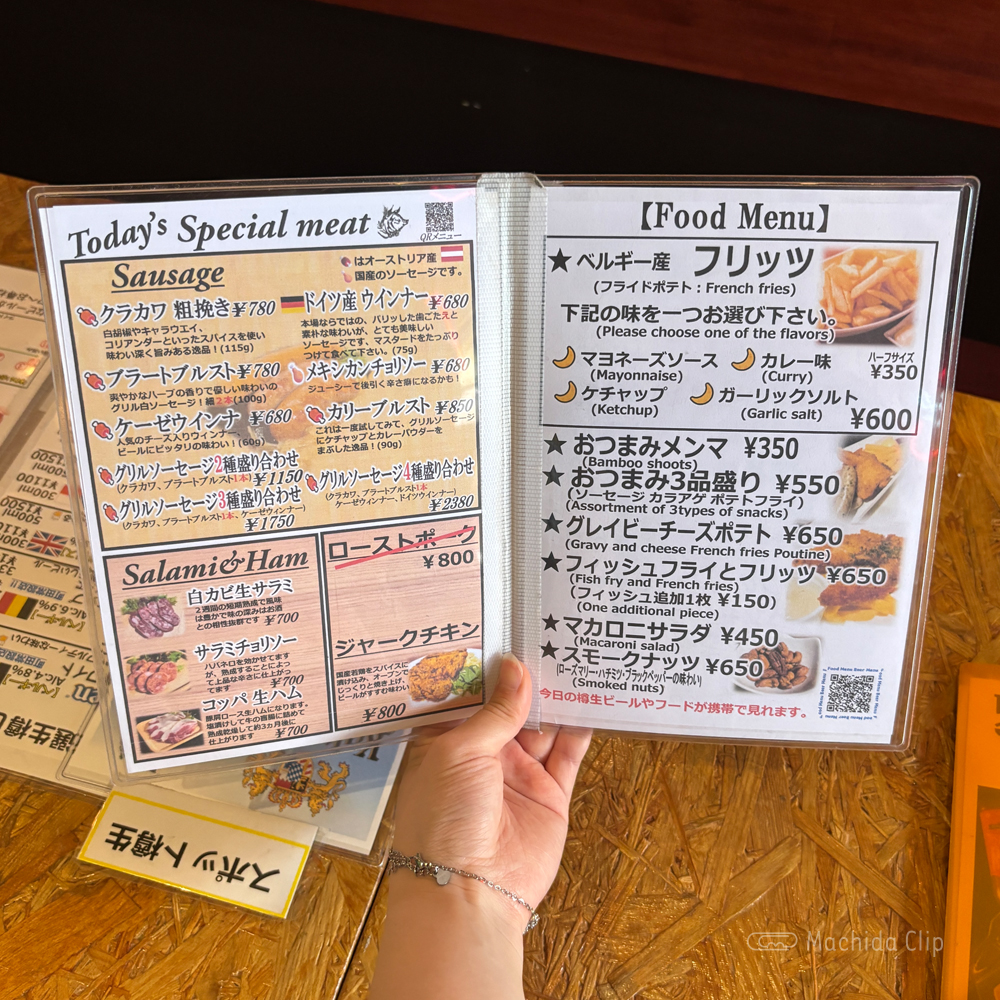 Today's Special meat
QRメニュー
Sausage
はオーストリア産
国産のソーセージです。
クラカワ 粗挽き ¥780
白胡椒やキャラウエイ、
コリアンダーといったスパイスを使い
味わい深く旨みある逸品！(115g)
ブラートブルスト ¥780
爽やかなハーブの香りで優しい味わいの
グリル白ソーセージ！細2本(100g)
ケーゼウインナ ¥680
人気のチーズ入りウィンナー
ビールにピッタリの味わい！(60g)
グリルソーセージ2種盛り合わせ
(クラカワ、ブラートブルスト1本) ¥1150
グリルソーセージ3種盛り合わせ
(クラカワ、ブラートブルスト1本、ケーゼウィンナー)
¥1750
ドイツ産 ウインナー ¥680
本場ならではの、パリッした歯ごたえと
素朴な味わいが、とても美味しい
ソーセージです、マスタードをたっぷり
つけて食べて下さい。(75g)
メキシカンチョリソー ¥680
ジューシーで後引く辛さ癖になるかも！
カリーブルスト ¥850
これは一度試してみて、グリルソーセージ
にケチャップとカレーパウダーを
まぶした逸品！(90g)
グリルソーセージ4種盛り合わせ
(クラカワ、ブラートブルスト1本
ケーゼウィンナー、ドイツウィンナー)
¥2380
Salami&Ham
白カビ生サラミ
2週間の短期熟成で風味
は豊かで味の深みはお酒
との相性抜群です ¥700
サラミチョリソー
ハバネロを効かせてます
が、熟成することによっ
て上品な辛さに仕上がっ
てます ¥700
コッパ 生ハム
豚肩ロース生ハムになります。
塩漬けして牛の盲腸に詰めて
熟成乾燥して約3ヵ月で
仕上がります ¥700
ローストポーク
¥800
ジャークチキン
国産若鶏をスパイスに
漬け込み、オーブンで
じっくりと焼き上げ、
ビールがすすむ味わい
¥800
【Food Menu】
★ ベルギー産 フリッツ
(フライドポテト：French fries)
下記の味を一つお選び下さい。
(Please choose one of the flavors)
マヨネーズソース
(Mayonnaise)
カレー味
(Curry)
ハーフサイズ
¥350
ケチャップ
(Ketchup)
ガーリックソルト
(Garlic salt)
¥600
★ おつまみメンマ ¥350
(Bamboo shoots)
★ おつまみ3品盛り ¥550
(ソーセージ カラアゲ ポテトフライ)
(Assortment of 3types of snacks)
★ グレイビーチーズポテト ¥650
(Gravy and cheese French fries Poutine)
★ フィッシュフライとフリッツ ¥650
(Fish fry and French fries)
(フィッシュ追加1枚 ¥150)
(One additional piece)
★ マカロニサラダ ¥450
(Macaroni salad)
★ スモークナッツ ¥650
(ローズマリー・ハチミツ・ブラックペッパーの味わい)
(Smoked nuts)
今日の樽生ビールやフードが携帯で見れます。
スポット樽生
Machida Clip